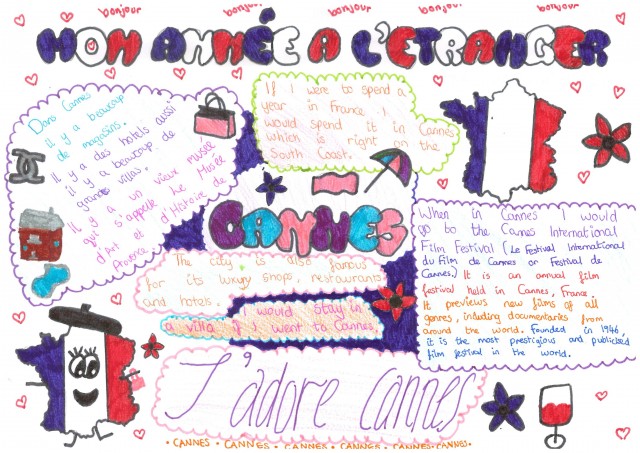 bonjour bonjour bonjour bonjour bonjour
MON ANNÉE A L'ETRANGER
Dans Cannes
il y a beaucoup
de magasins.
Il y a des hotels aussi
il y a beaucoup de
grandes villas.
Il y a un vieux musée
qui s'appelle Le Musée
d'Art et d'Histoire de
Provence
If I were to spend a
year in France, I
would spend it in Cannes
which is right on the
South Coast.
CANNES
The city is also famous
for its luxury shops, restaurants
and hotels.
I would stay in
a villa if I went to Cannes.
When in Cannes I would
go to the Cannes International
Film Festival (Le Festival International
du Film de Cannes or Festival de
Cannes.) It is an annual film
festival held in Cannes, France.
It previews new films of all
genres, including documentaries from
around the world. Founded in 1946,
it is the most prestigious and publicised
film festival in the world.
J'adore Cannes
CANNES • CANNES • CANNES • CANNES • CANNES • CANNES • CANNES •